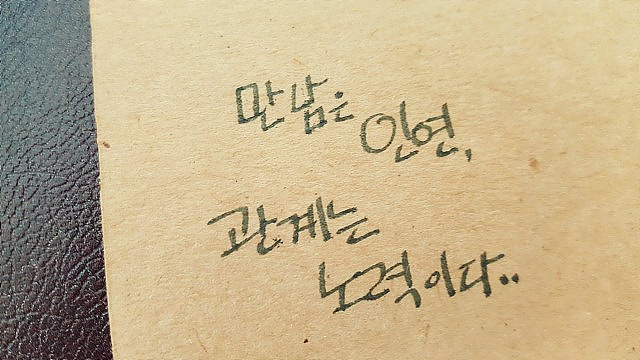 만남은
인연,
관계는
노력이다..